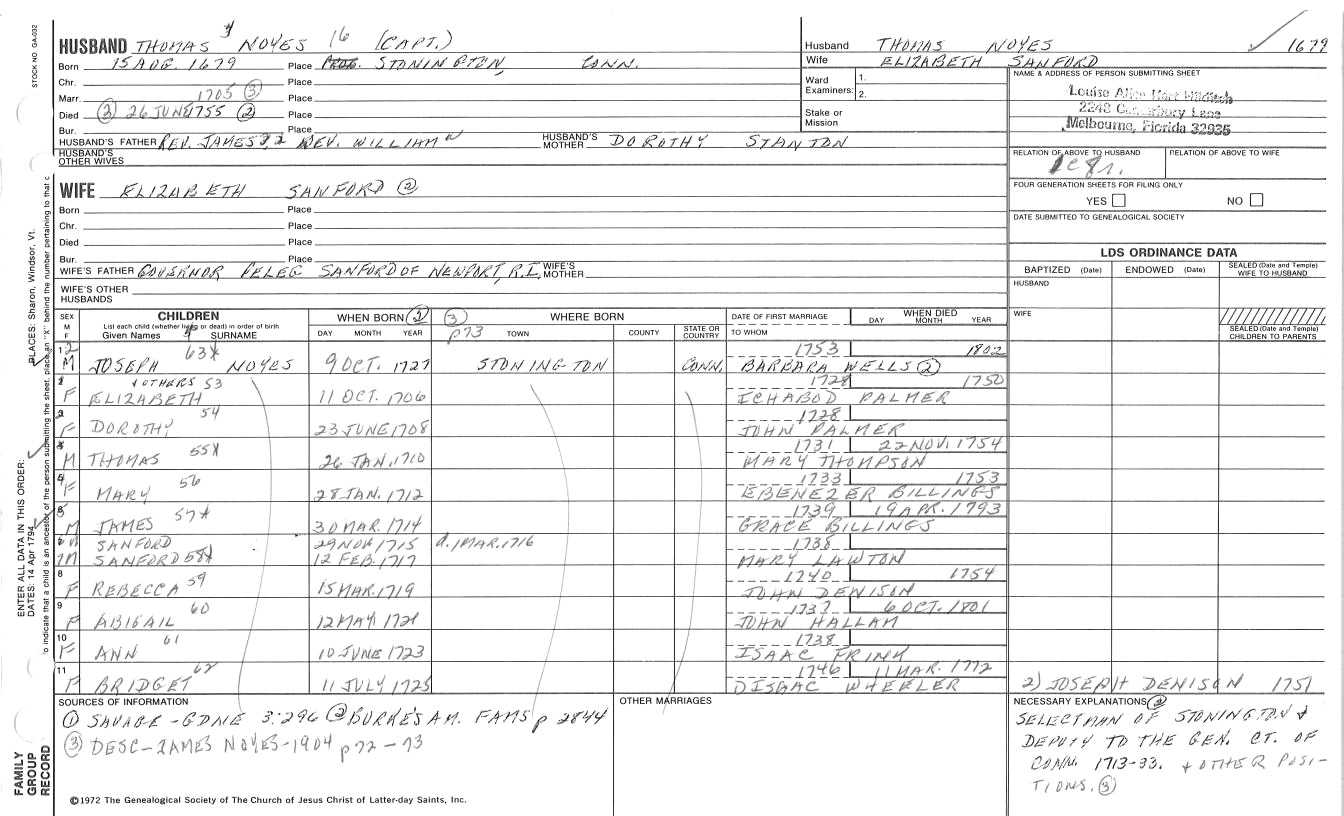 STOCK NO GA-032
HUSBAND THOMAS 4 NOYES 16 (CAPT.)
Born 15 AUG 1679 Place STONINGTON, CONN.
Chr. Place
Marr. 1705 (3) Place
Died (3) 26 JUNE 1755 (2) Place
Bur. Place
HUSBAND'S FATHER REV. JAMES 3, 2 REV. WILLIAM HUSBAND'S MOTHER DOROTHY STANTON
HUSBAND'S OTHER WIVES
Husband THOMAS NOYES 1679
Wife ELIZABETH SANFORD
Ward 1.
Examiners: 2.
Stake or Mission
NAME & ADDRESS OF PERSON SUBMITTING SHEET
Louise Alice Hilditch
2240 Lane
Melbourne, Florida 32935
RELATION OF ABOVE TO HUSBAND
RELATION OF ABOVE TO WIFE
FOUR GENERATION SHEETS FOR FILING ONLY
YES NO
DATE SUBMITTED TO GENEALOGICAL SOCIETY
WIFE ELIZABETH SANFORD (2)
Born Place
Chr. Place
Died Place
Bur. Place
WIFE'S FATHER GOVERNOR PELEG SANFORD OF NEWPORT, R.I. WIFE'S MOTHER
WIFE'S OTHER HUSBANDS
LDS ORDINANCE DATA
BAPTIZED (Date) ENDOWED (Date) SEALED (Date and Temple) WIFE TO HUSBAND
HUSBAND
WIFE
SEALED (Date and Temple) CHILDREN TO PARENTS
SEX M F
CHILDREN
List each child (whether living or dead) in order of birth
Given Names SURNAME
WHEN BORN
DAY MONTH YEAR
(3) p73
WHERE BORN
TOWN COUNTY STATE OR COUNTRY
DATE OF FIRST MARRIAGE
TO WHOM
WHEN DIED
DAY MONTH YEAR
M JOSEPH 63X NOYES 9 OCT. 1727 STONINGTON CONN. 1753 1802 BARBARA WELLS (2)
& OTHERS 53
F ELIZABETH 11 OCT. 1706 1728 1750 ICHABOD PALMER
F DOROTHY 54 23 JUNE 1708 1728 JOHN PALMER
M THOMAS 55X 26 JAN. 1710 1731 22 NOV. 1754 MARY THOMPSON
F MARY 56 28 JAN. 1712 1733 1753 EBENEZER BILLINGS
M JAMES 57X 30 MAR. 1714 1739 19 APR. 1793 GRACE BILLINGS
6 M SANFORD 29 NOV 1715 d. 1 MAR. 1716
7 M SANFORD 58X 12 FEB. 1717 1738 MARY LAWTON
8 F REBECCA 59 15 MAR. 1719 1740 1754 JOHN DENISON
9 F ABIGAIL 60 12 MAY 1721 1737 6 OCT. 1801 JOHN HALLAM
10 F ANN 61 10 JUNE 1723 1738 ISAAC FRINK
11 F BRIDGET 62 11 JULY 1725 1746 11 MAR. 1772 1) ISAAC WHEELER 2) JOSEPH DENISON 1751
SOURCES OF INFORMATION
(1) SAVAGE - GDNE 3:296 (2) BURKE'S AM. FAMS p 2844
(3) DESC - JAMES NOYES - 1904 p72 - 73
OTHER MARRIAGES
NECESSARY EXPLANATIONS (2)
SELECTMAN OF STONINGTON &
DEPUTY TO THE GEN. CT. OF
CONN. 1713-33. & OTHER POSI-
TIONS. (3)
©1972 The Genealogical Society of The Church of Jesus Christ of Latter-day Saints, Inc.
FAMILY GROUP RECORD
ENTER ALL DATA IN THIS ORDER:
DATES: 14 Apr 1794
PLACES: Sharon, Windsor, Vt.
to indicate that a child is an ancestor of the person submitting the sheet, place an "X" behind the number pertaining to that c